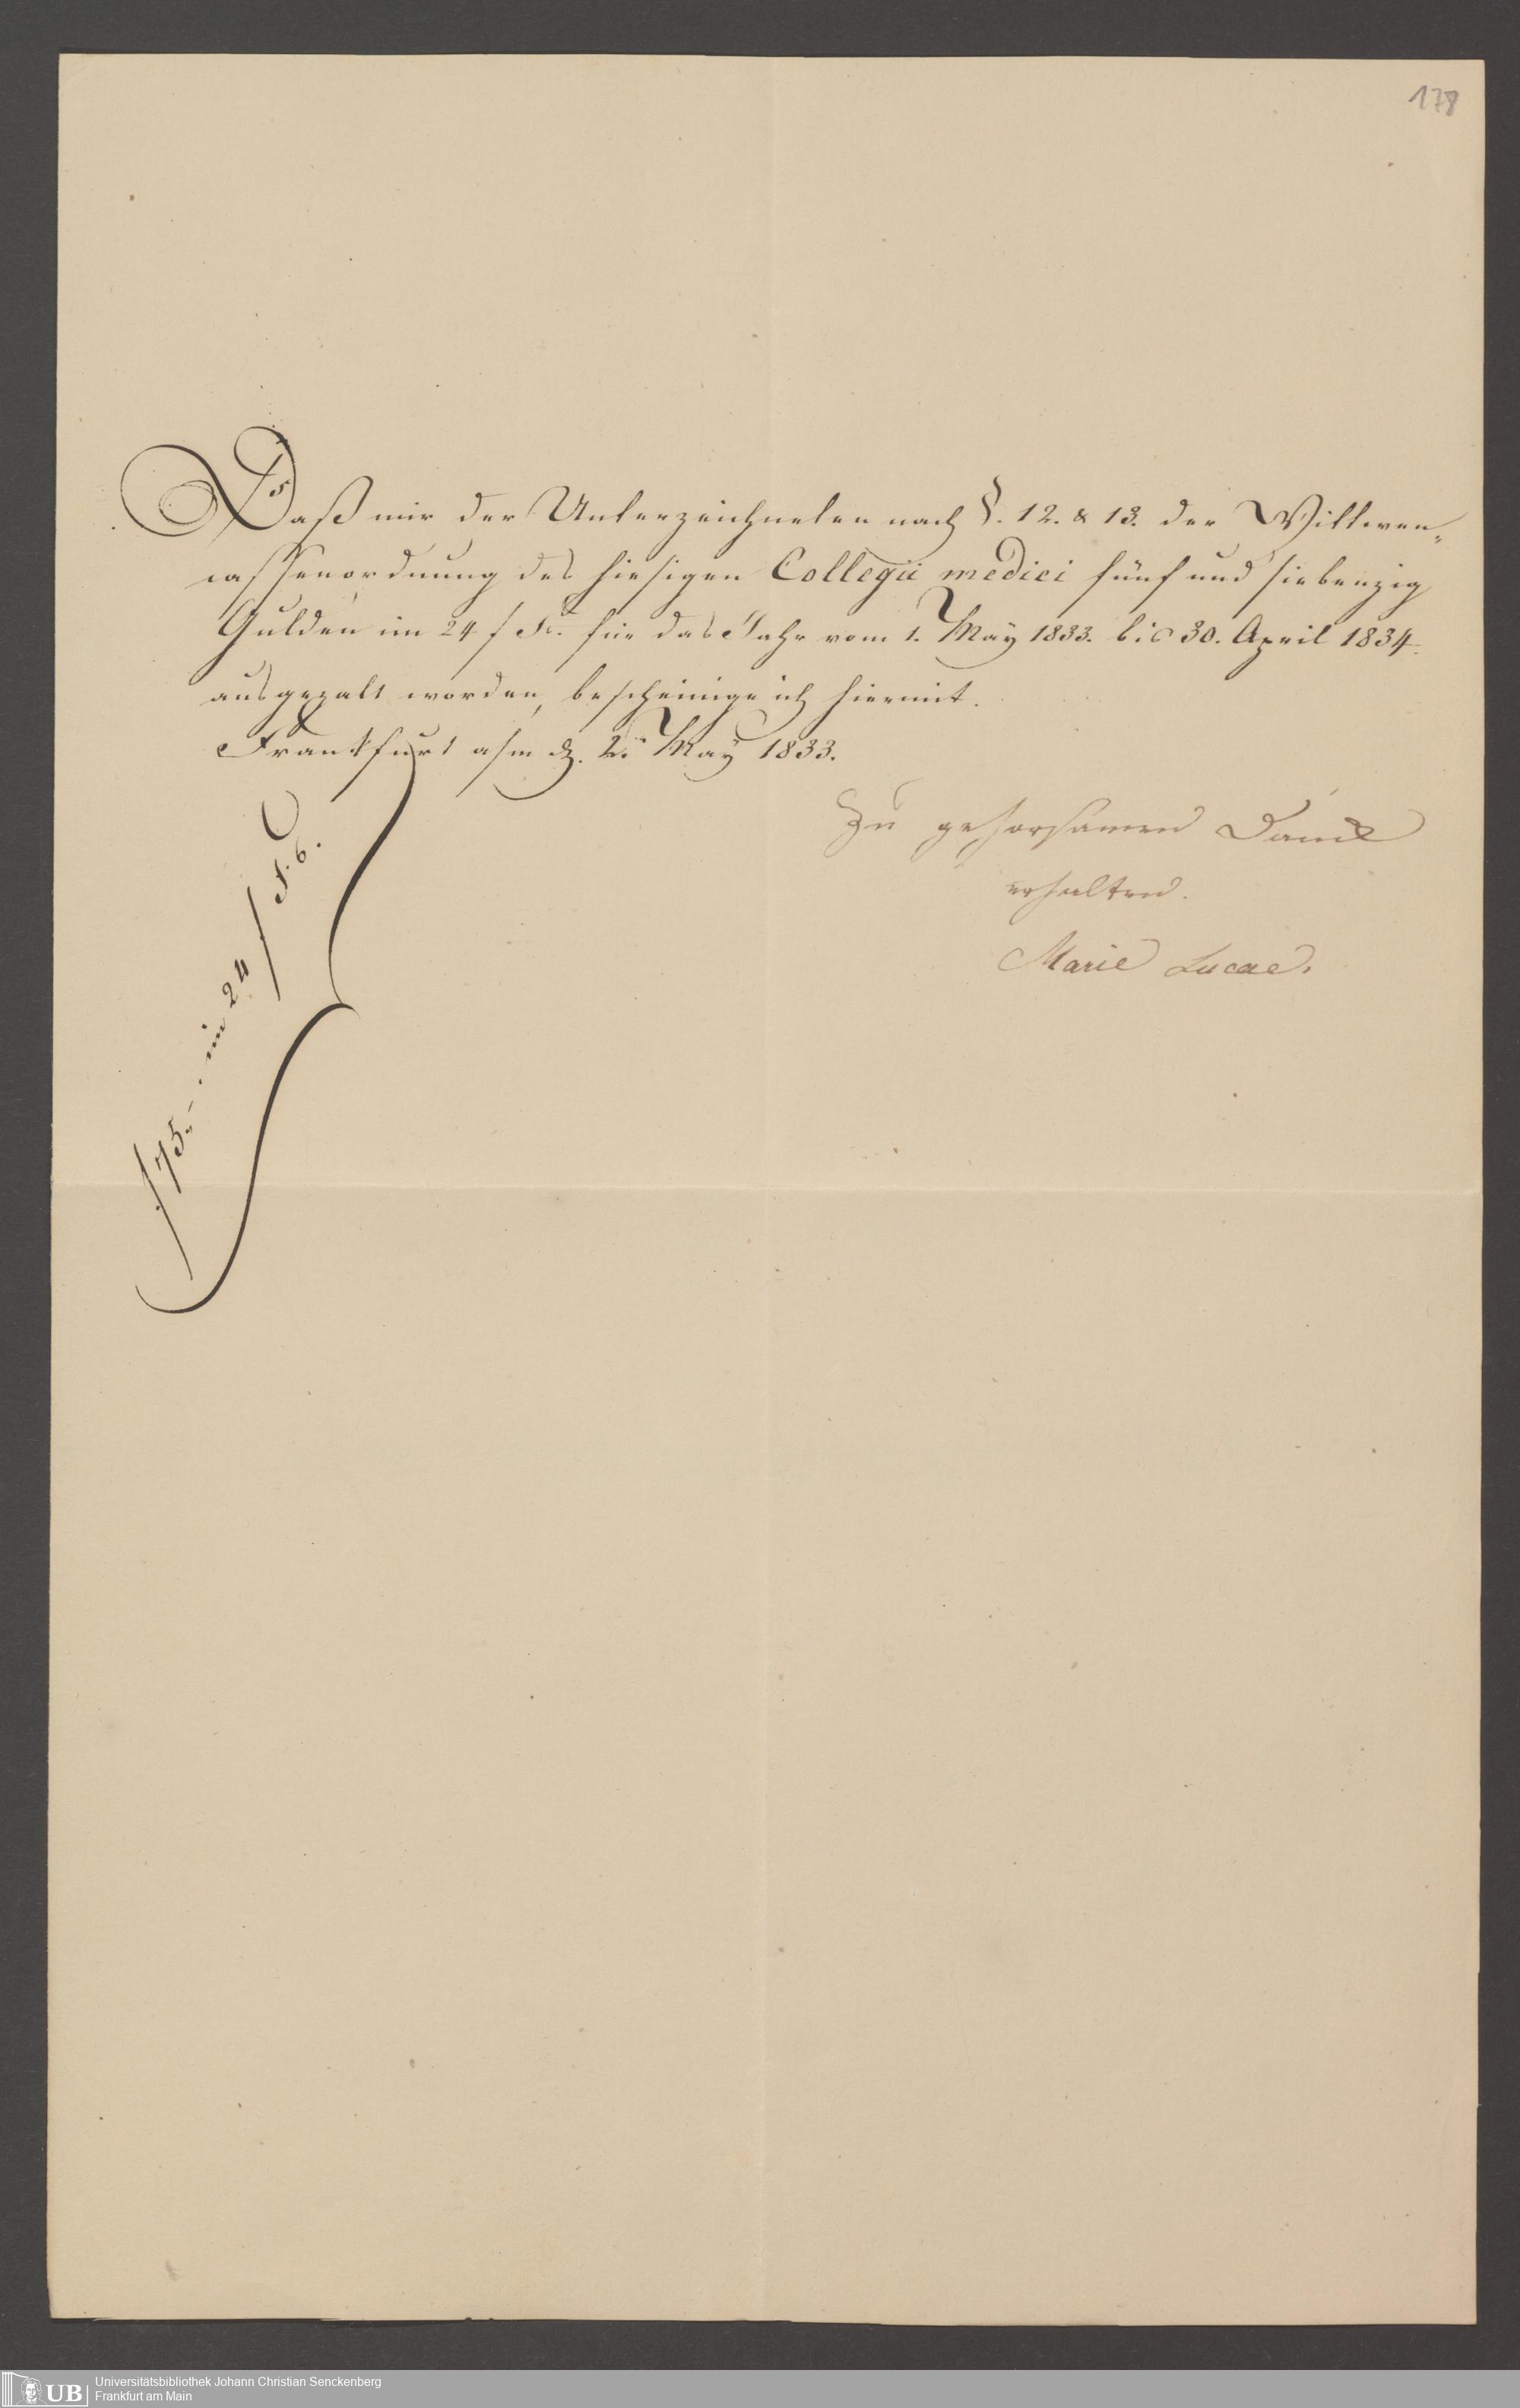 178
Daß mir der Unterzeichneten nach §. 12. & 13. der Wittwen„
cassenordnung des hiesigen Collegii medici fünf und siebenzig
Gulden im 24 f Fß. für das Jahr vom 1. May 1833. bis 30. April 1834.
ausgezalt worden, bescheinige ich hiermit.
Frankfurt a/m d. 2. May 1833.
Zu gehorsamen Danck
erhalten.
Marie Lucae.
f 75.-. im 24 f
UB Universitätsbibliothek Johann Christian Senckenberg
Frankfurt am Main